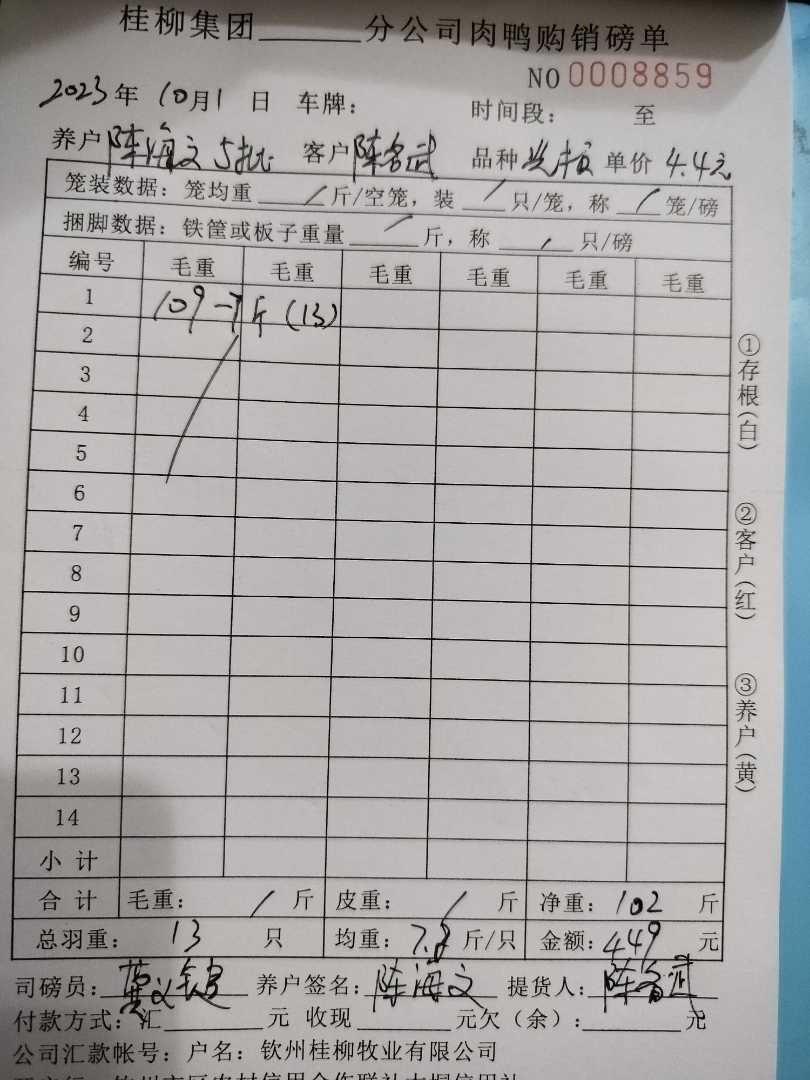 桂柳集团______分公司肉鸭购销磅单
NO 0008859
2023年 10月1日 车牌: 时间段: 至
养户 陈海文 5批 客户 陈名武 品种 单价 4.4元
笼装数据:笼均重 / 斤/空笼,装 / 只/笼,称 / 笼/磅
捆脚数据:铁筐或板子重量 / 斤,称 / 只/磅
编号 毛重 毛重 毛重 毛重 毛重 毛重
1 109-7斤(13)
2
3
4
5
6
7
8
9
10
11
12
13
14
小计
合计 毛重: / 斤 皮重: / 斤 净重:102 斤
总羽重: 13 只 均重:7.8斤/只 金额:449 元
司磅员: 养户签名:陈海文 提货人:陈名武
付款方式:汇______元 收现______元欠(余):______元
公司汇款帐号:户名:钦州桂柳牧业有限公司
①存根(白)
②客户(红)
③养户(黄)